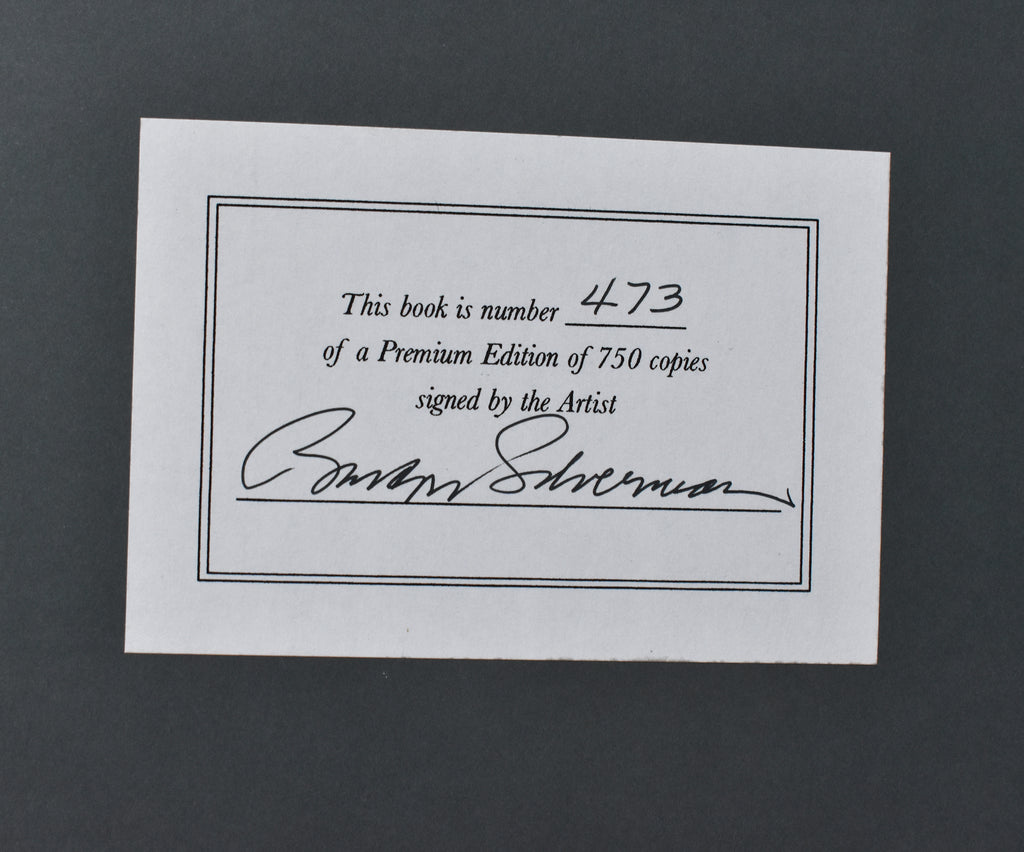 This book is number 473
of a Premium Edition of 750 copies
signed by the Artist
Burton Silverman